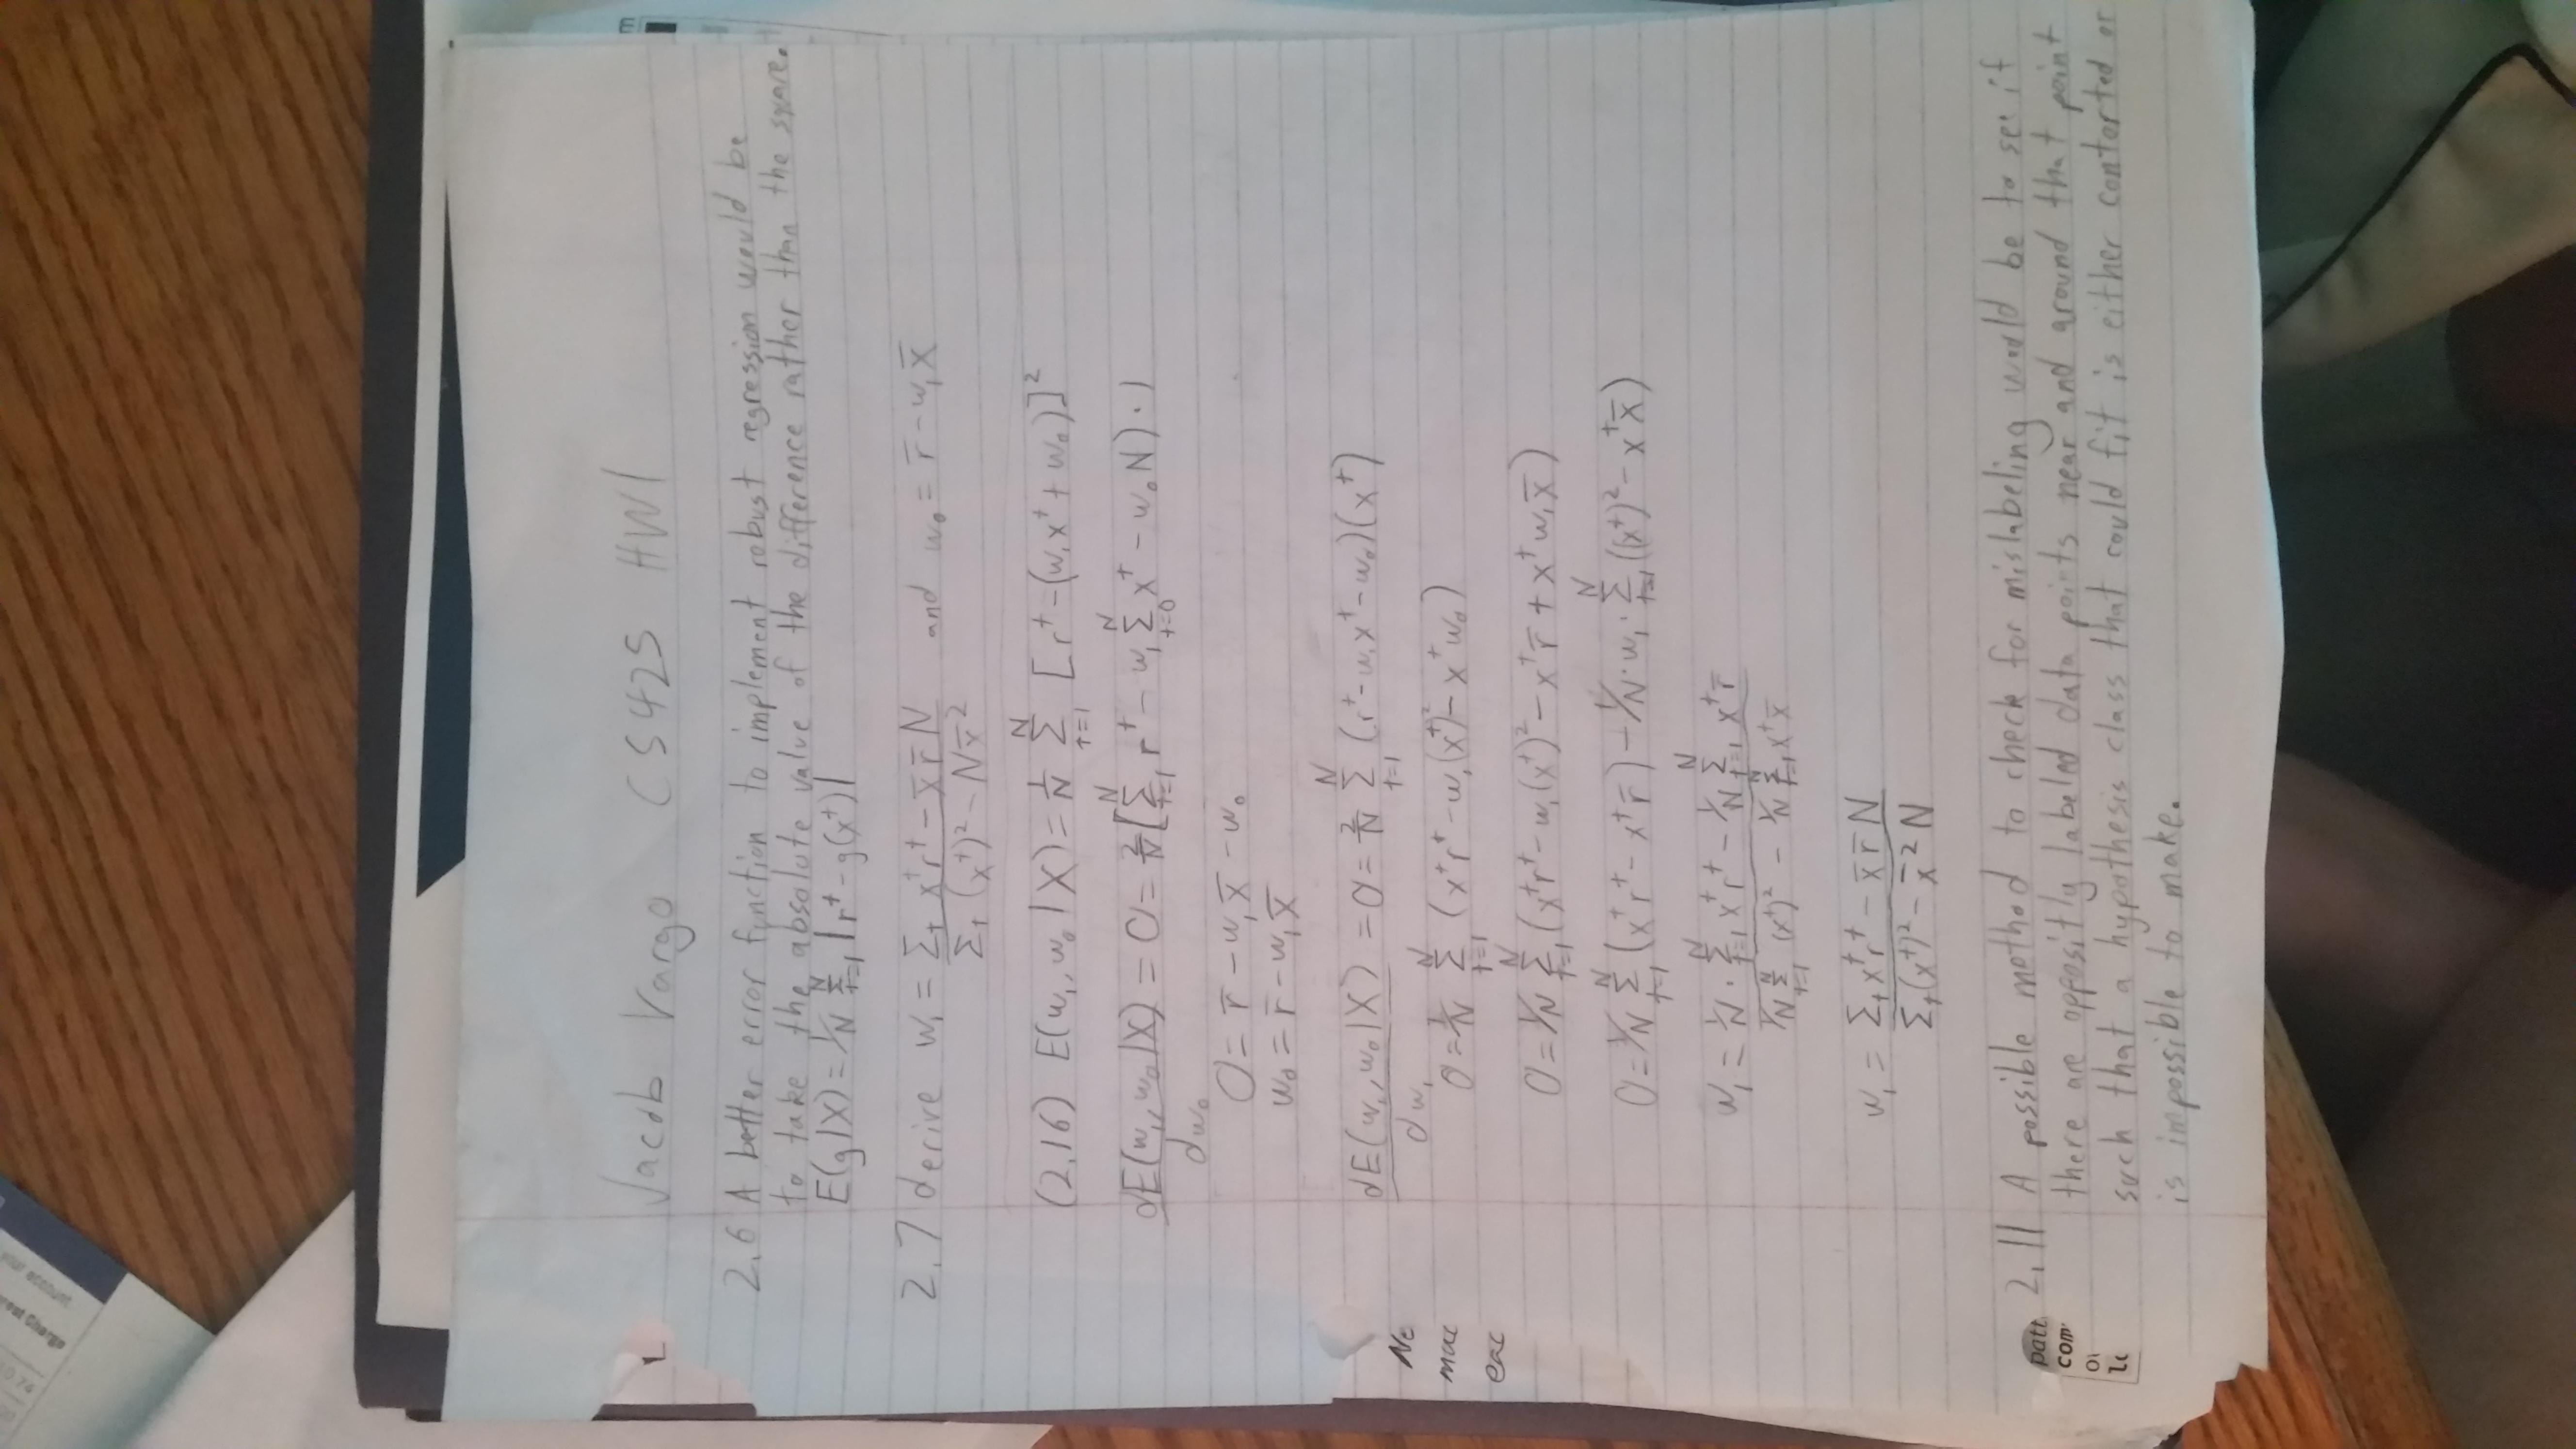 Jacob Vargo CS425 HW1
2.6 A better error function to implement robust regression would be
to take the absolute value of the difference rather than the square.
E(g|X) = 1/N Σ_{t=1}^{N} |r^t - g(x^t)|
2.7 derive w₁ = (Σ_t x^t r^t - x̄ r̄ N) / (Σ_t (x^t)² - N x̄²) and w₀ = r̄ - w₁x̄
(2.16) E(w₁, w₀ | X) = 1/N Σ_{t=1}^{N} [r^t - (w₁x^t + w₀)]²
dE(w₁, w₀|X)/dw₀ = 0 = 2/N [Σ_{t=1}^{N} r^t - w₁ Σ_{t=0}^{N} x^t - w₀N) · 1
0 = r̄ - w₁x̄ - w₀
w₀ = r̄ - w₁x̄
dE(w₁, w₀|X)/dw₁ = 0 = 2/N Σ_{t=1}^{N} (r^t - w₁x^t - w₀)(x^t)
0 = 1/N Σ_{t=1}^{N} (x^t r^t - w₁(x^t)² - x^t w₀)
0 = 1/N Σ_{t=1}^{N} (x^t r^t - w₁(x^t)² - x^t r̄ + x^t w₁x̄)
0 = 1/N Σ_{t=1}^{N} (x^t r^t - x^t r̄) - 1/N · w₁ · Σ_{t=1}^{N} ((x^t)² - x^t x̄)
w₁ = (1/N · Σ_{t=1}^{N} x^t r^t - 1/N Σ_{t=1}^{N} x^t r̄) / (1/N Σ_{t=1}^{N} (x^t)² - 1/N Σ_{t=1}^{N} x^t x̄)
w₁ = (Σ_t x^t r^t - x̄ r̄ N) / (Σ_t (x^t)² - x̄² N)
2.11 A possible method to check for mislabeling would be to see if
there are oppositly labeled data points near and around that point
such that a hypothesis class that could fit is either contorted or
is impossible to make.
Ne
mac
eac
patt
com